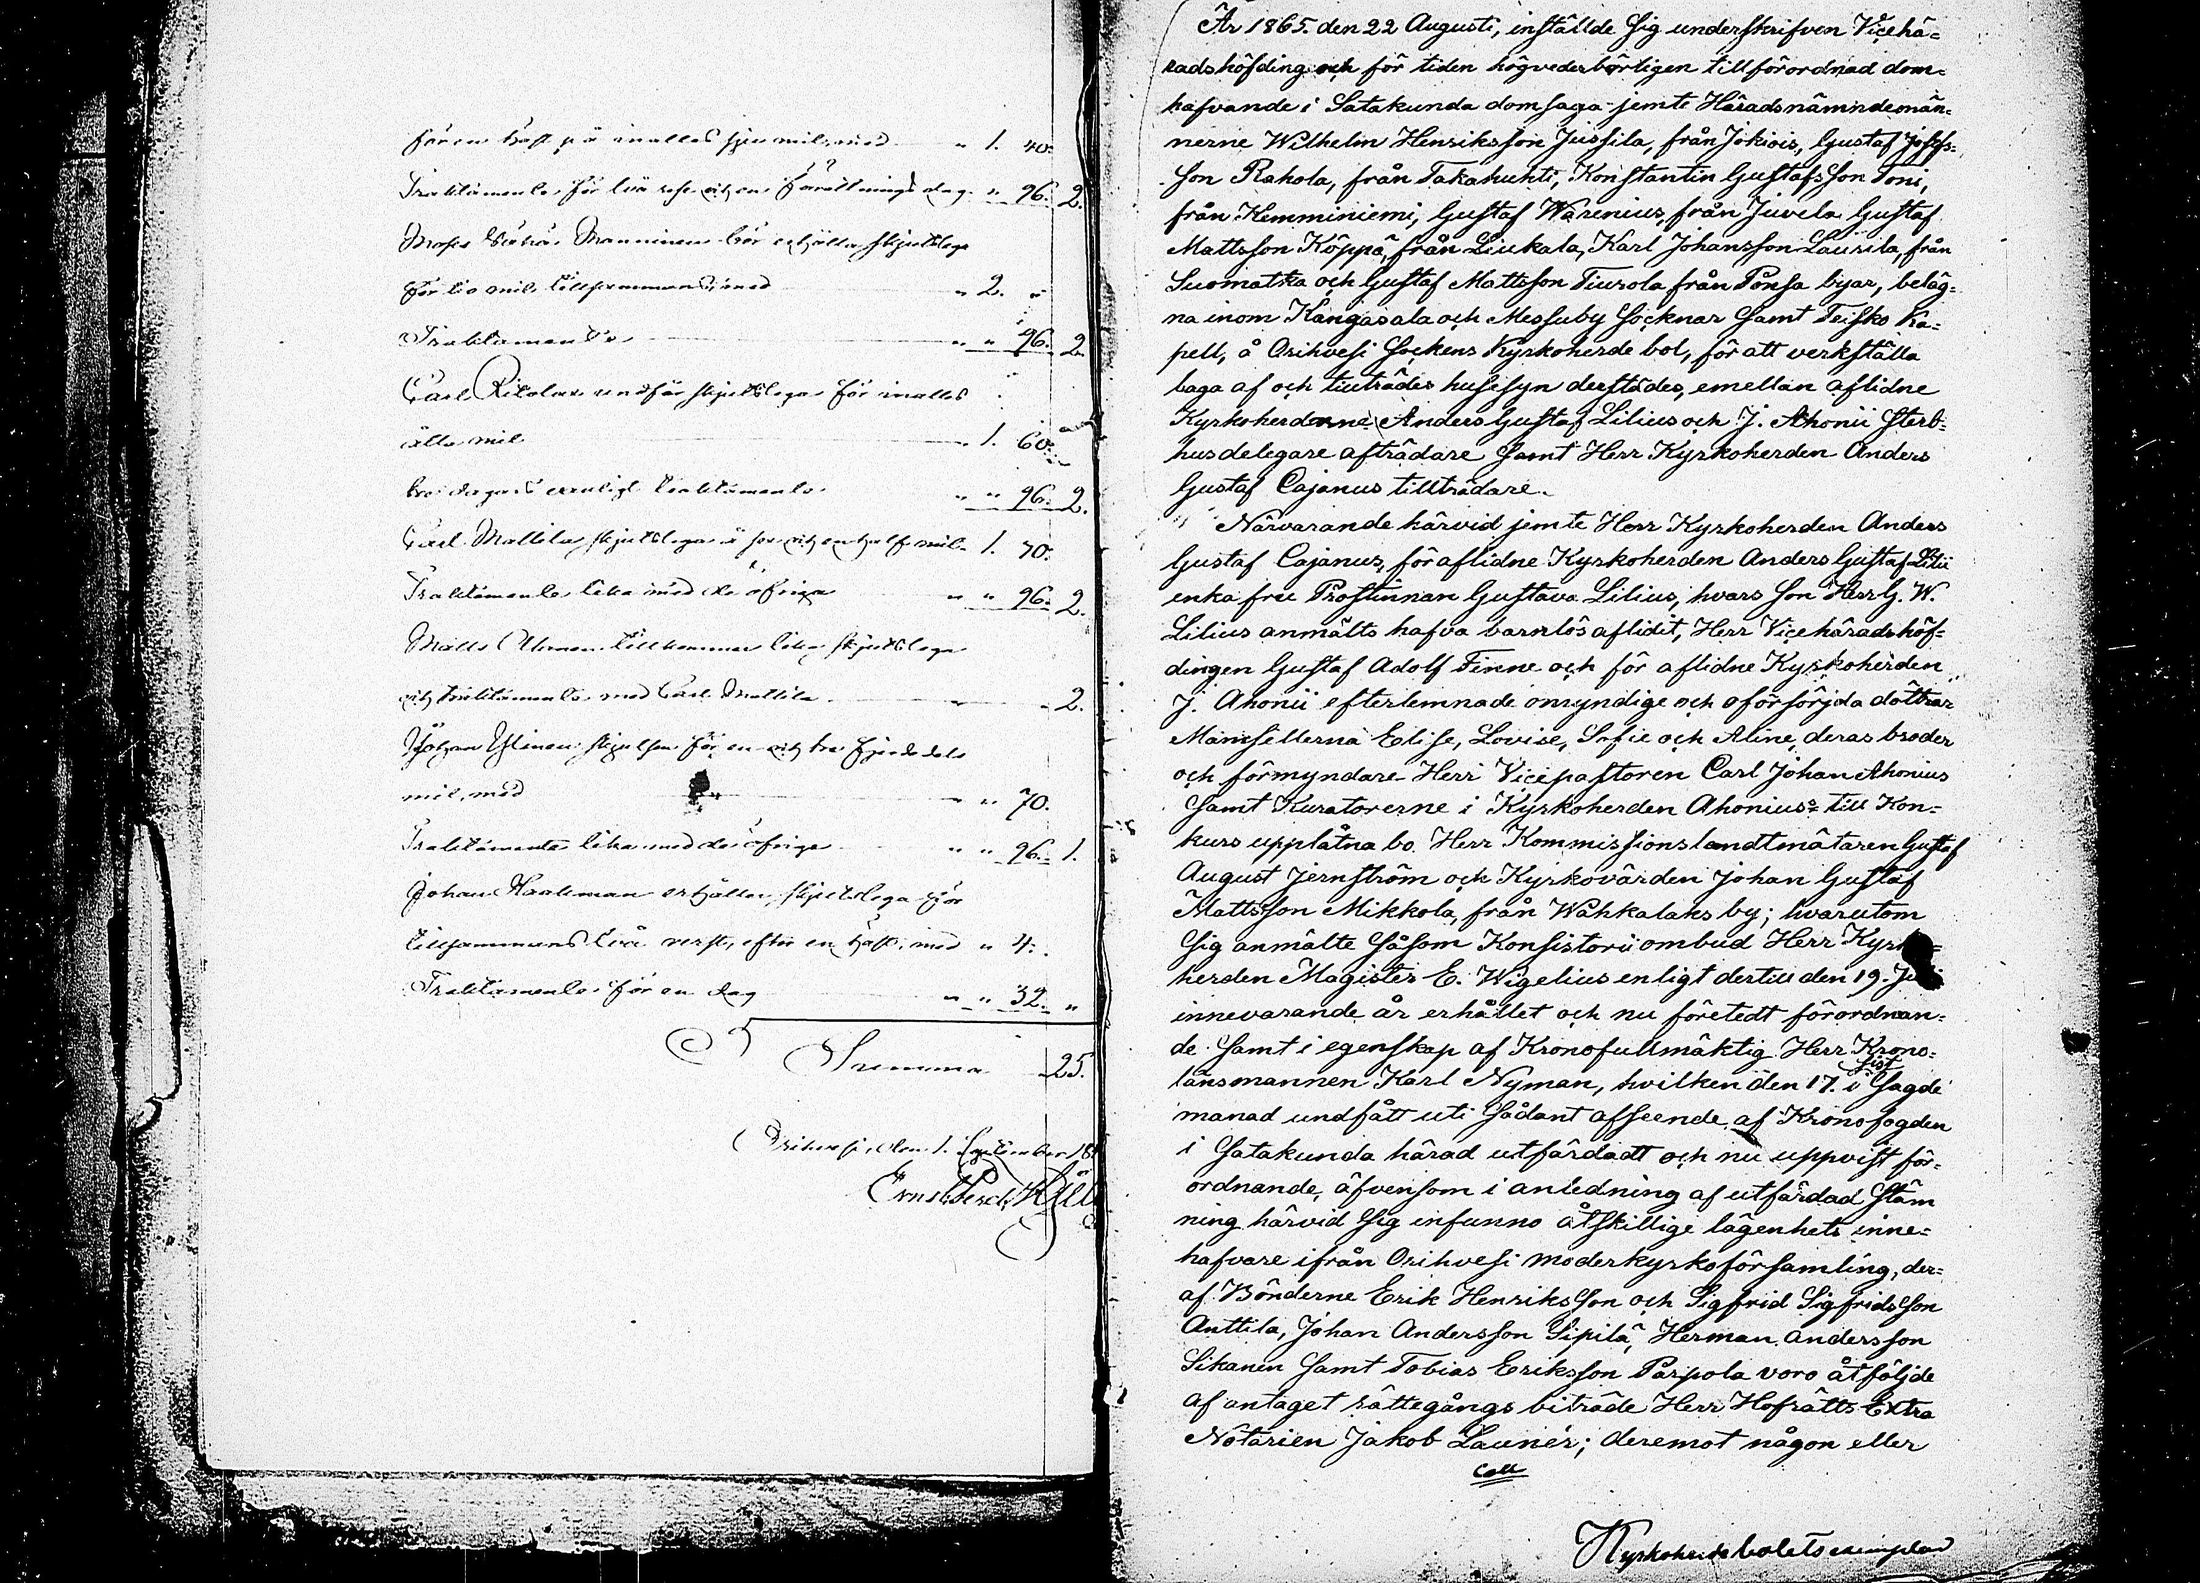 för en häst på inalles sju mil, med " 1. 40.
Traktamente för två rese och en förrättnings dag " 96. 2.
Manninen bör erhålla skjutslega
för tio mil tillsammans, med " 2. "
Traktamente " " 96. 2.
Carl undfår skjutslega för inalles
åtta mil " 1. 60.
tre dagars vanligt traktamente " " 96. 2.
Carl Mattila skjutslega å sex och en half mil 1. 70.
Traktamente lika med de öfriga " " 96. 2.
Matts tillkommer lika skjutslega
och traktamente med Carl Mattila " " 2.
Johan skjutsen för en och tre fjerdedels
mil, med " " 70.
Traktamente lika med de öfriga " " 96. 1.
Johan erhåller skjutslega för
tillsammans två verst, efter en häst, med " 4.
Traktamente för en dag " " 32. "
Summa 25.
Orihvesi, den 1. September 18
Ernst
År 1865. den 22 Augusti, inställde sig underskrifven Vicehä-
radshöfding och för tiden högvederbörligen tillförordnad dom-
hafvande i Satakunda domsaga jemte Häradsnämndemän-
nerne Wilhelm Henriksson Jussila, från Jokiois, Gustaf Josefs-
son Rahola, från Takahuhti, Konstantin Gustafsson Toni,
från Hemminiemi, Gustaf Warenius, från Juvela Gustaf
Mattsson Köppä, från Liukala, Karl Johansson Laurila, från
Suomatka och Gustaf Mattsson Tiurola från Pånsa byar, beläg-
na inom Kangasala och Messuby Socknar samt Teisko Ka-
pell, å Orihvesi Sockens Kyrkoherde bol, för att verkställa
laga af och tillträdes husesyn derstädes, emellan aflidne
Kyrkoherdenne Anders Gustaf Lilius och J. Ahonii Sterb-
husdelegare afträdare samt Herr Kyrkoherden Anders
Gustaf Cajanus tillträdare.
Närvarande härvid jemte Herr Kyrkoherden Anders
Gustaf Cajanus, för aflidne Kyrkoherden Anders Gustaf Lilii
enka fru Prostinnan Gustava Lilius, hvars son Herr G. W.
Lilius anmälts hafva barnlös aflidit, Herr Vicehäradshöf-
dingen Gustaf Adolf Finne och för aflidne Kyrkoherden
J. Ahonii efterlemnade omyndige och oförsörjda döttrar
Mamsellerna Elise, Lovise, Sofie och Aline, deras broder
och förmyndare Herr Vicepastoren Carl Johan Ahonius
samt Kuratorerne i Kyrkoherden Ahonius= till Kon-
kurs upplåtna bo Herr Kommissionslandtmätaren Gustaf
August Jernström och Kyrkovärden Johan Gustaf
Mattsson Mikkola, från Wähkalaks by; hvarutom
sig anmälte såsom Konsistorii ombud Herr Kyrko-
herden Magister E. Wigelius enligt dertill den 19.
innevarande år erhållet och nu företedt förordnan-
de samt i egenskap af Kronofullmäktig Herr Krono-
länsmannen Karl Nyman, hvilken den 17. i sist sagde
manad undfått uti sådant afseende af Kronofogden
i Satakunda härad utfärdadt och nu uppvist för-
ordnande, äfvensom i anledning af utfärdad Stäm
ning härvid sig infunno åtskillige lägenhets inne-
hafvare ifrån Orihvesi moderkyrkoförsamling, der-
af Bönderne Erik Henriksson och Sigfrid Sigfridsson
Anttila, Johan Andersson Sipilä, Herman Andersson
Sikanen samt Tobias Eriksson Parpola voro åtföljde
af antaget rättegångs biträde Herr Hofrätts Extra
Notarien Jakob Launér; deremot någon eller
Coll
Kyrkoherdebolets exemplar